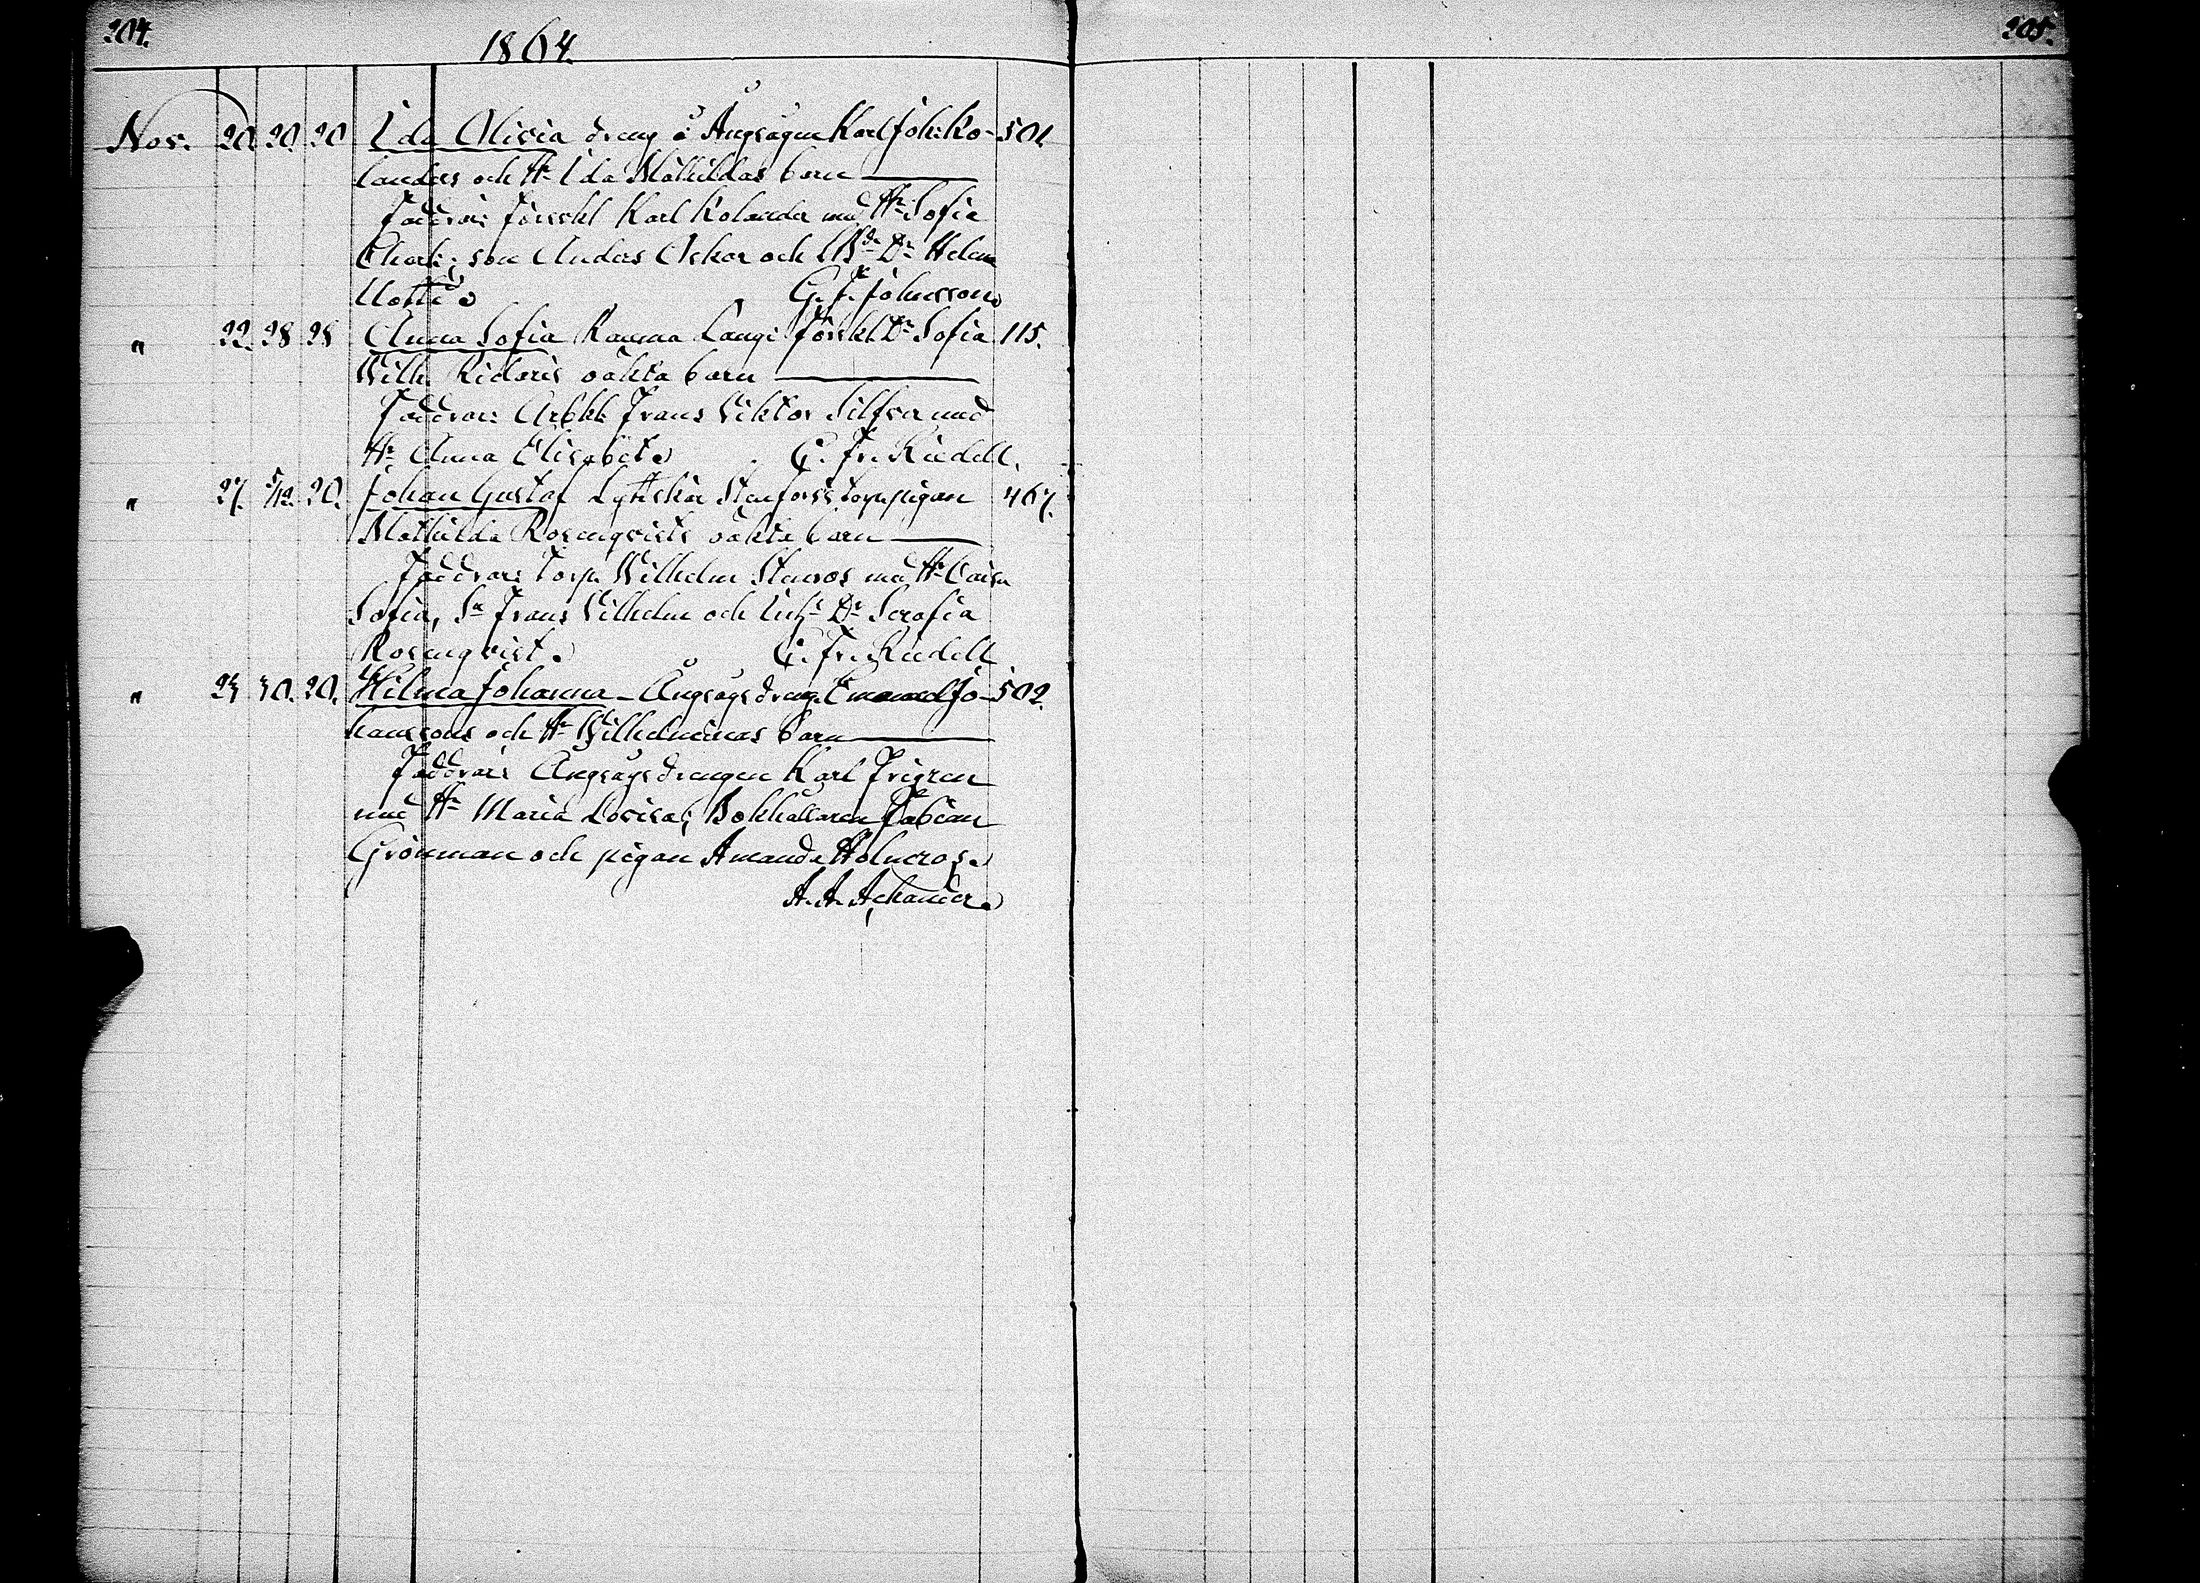 204.
1864.
205.
Nov. 20. 20. 20 Ida Olivia dreng å Ångsågen Karl Joh: Ko- 501.
landers och H:u Ida Mathildas barn
Faddrar: Försskl Karl Kolander med H:u Sofia
Charl: ; son Anders Oskar och D:r Helena
G. F. Johnsson.
" 22. 28 28 Anna Sofia Rauma Langi Försskl D:r Sofia 115.
Wilh. Ridaris oäkta barn
Faddrar: Arbkl Frans Viktor Silfver med
H:u Anna Elisabet. C. Fr. Riedell.
" 27. 5/12. 20. Johan Gustaf Lyttskär Stenforss torp pigan 467.
Mathilda Rosenqvists oäkta barn
Faddrar: Torp. Wilhelm Stenros med H:u Caisa
Sofia, S:n Frans Vilhelm och Inh:s D:r Serafia
Rosenqvist. C. Fr. Riedell
" 24 30. 20. Hilma Johanna - Ångsågsdreng. Emanuel Jo- 502.
hanssons och H:u Wilhelminas barn
Faddrar: Ångsågsdrengen Karl Frigren
med H:u Maria Lovisa; Bokhållaren Fabian
Grönman och pigan Amanda Holmros.
A. A. Ackander.